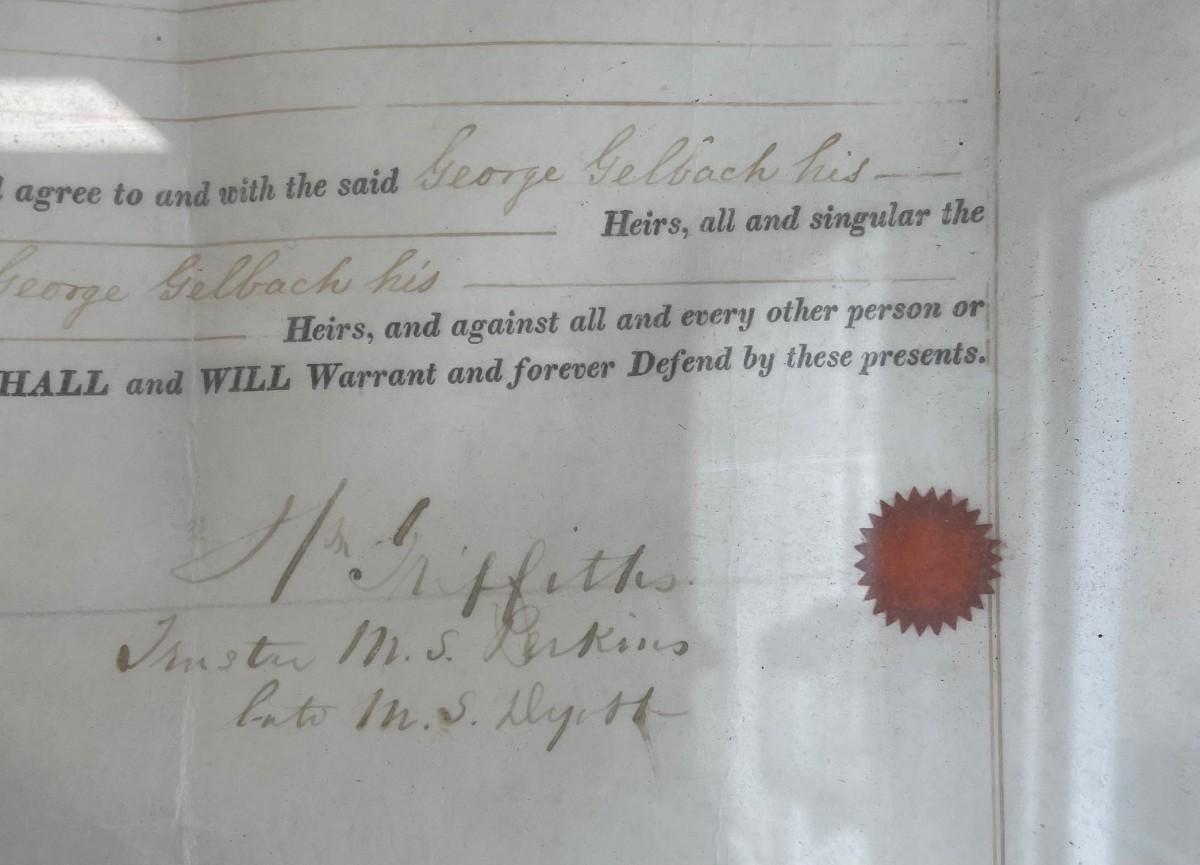 agree to and with the said George Gelbach his
Heirs, all and singular the
George Gelbach his
Heirs, and against all and every other person or
HALL and WILL Warrant and forever Defend by these presents.
Griffiths
Trustee M. S. Perkins
late M. S. Dyott